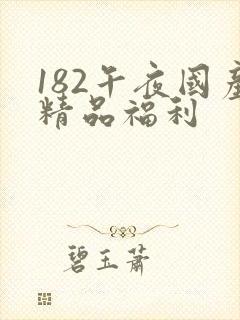 182午夜國產
精品福利
碧玉萧